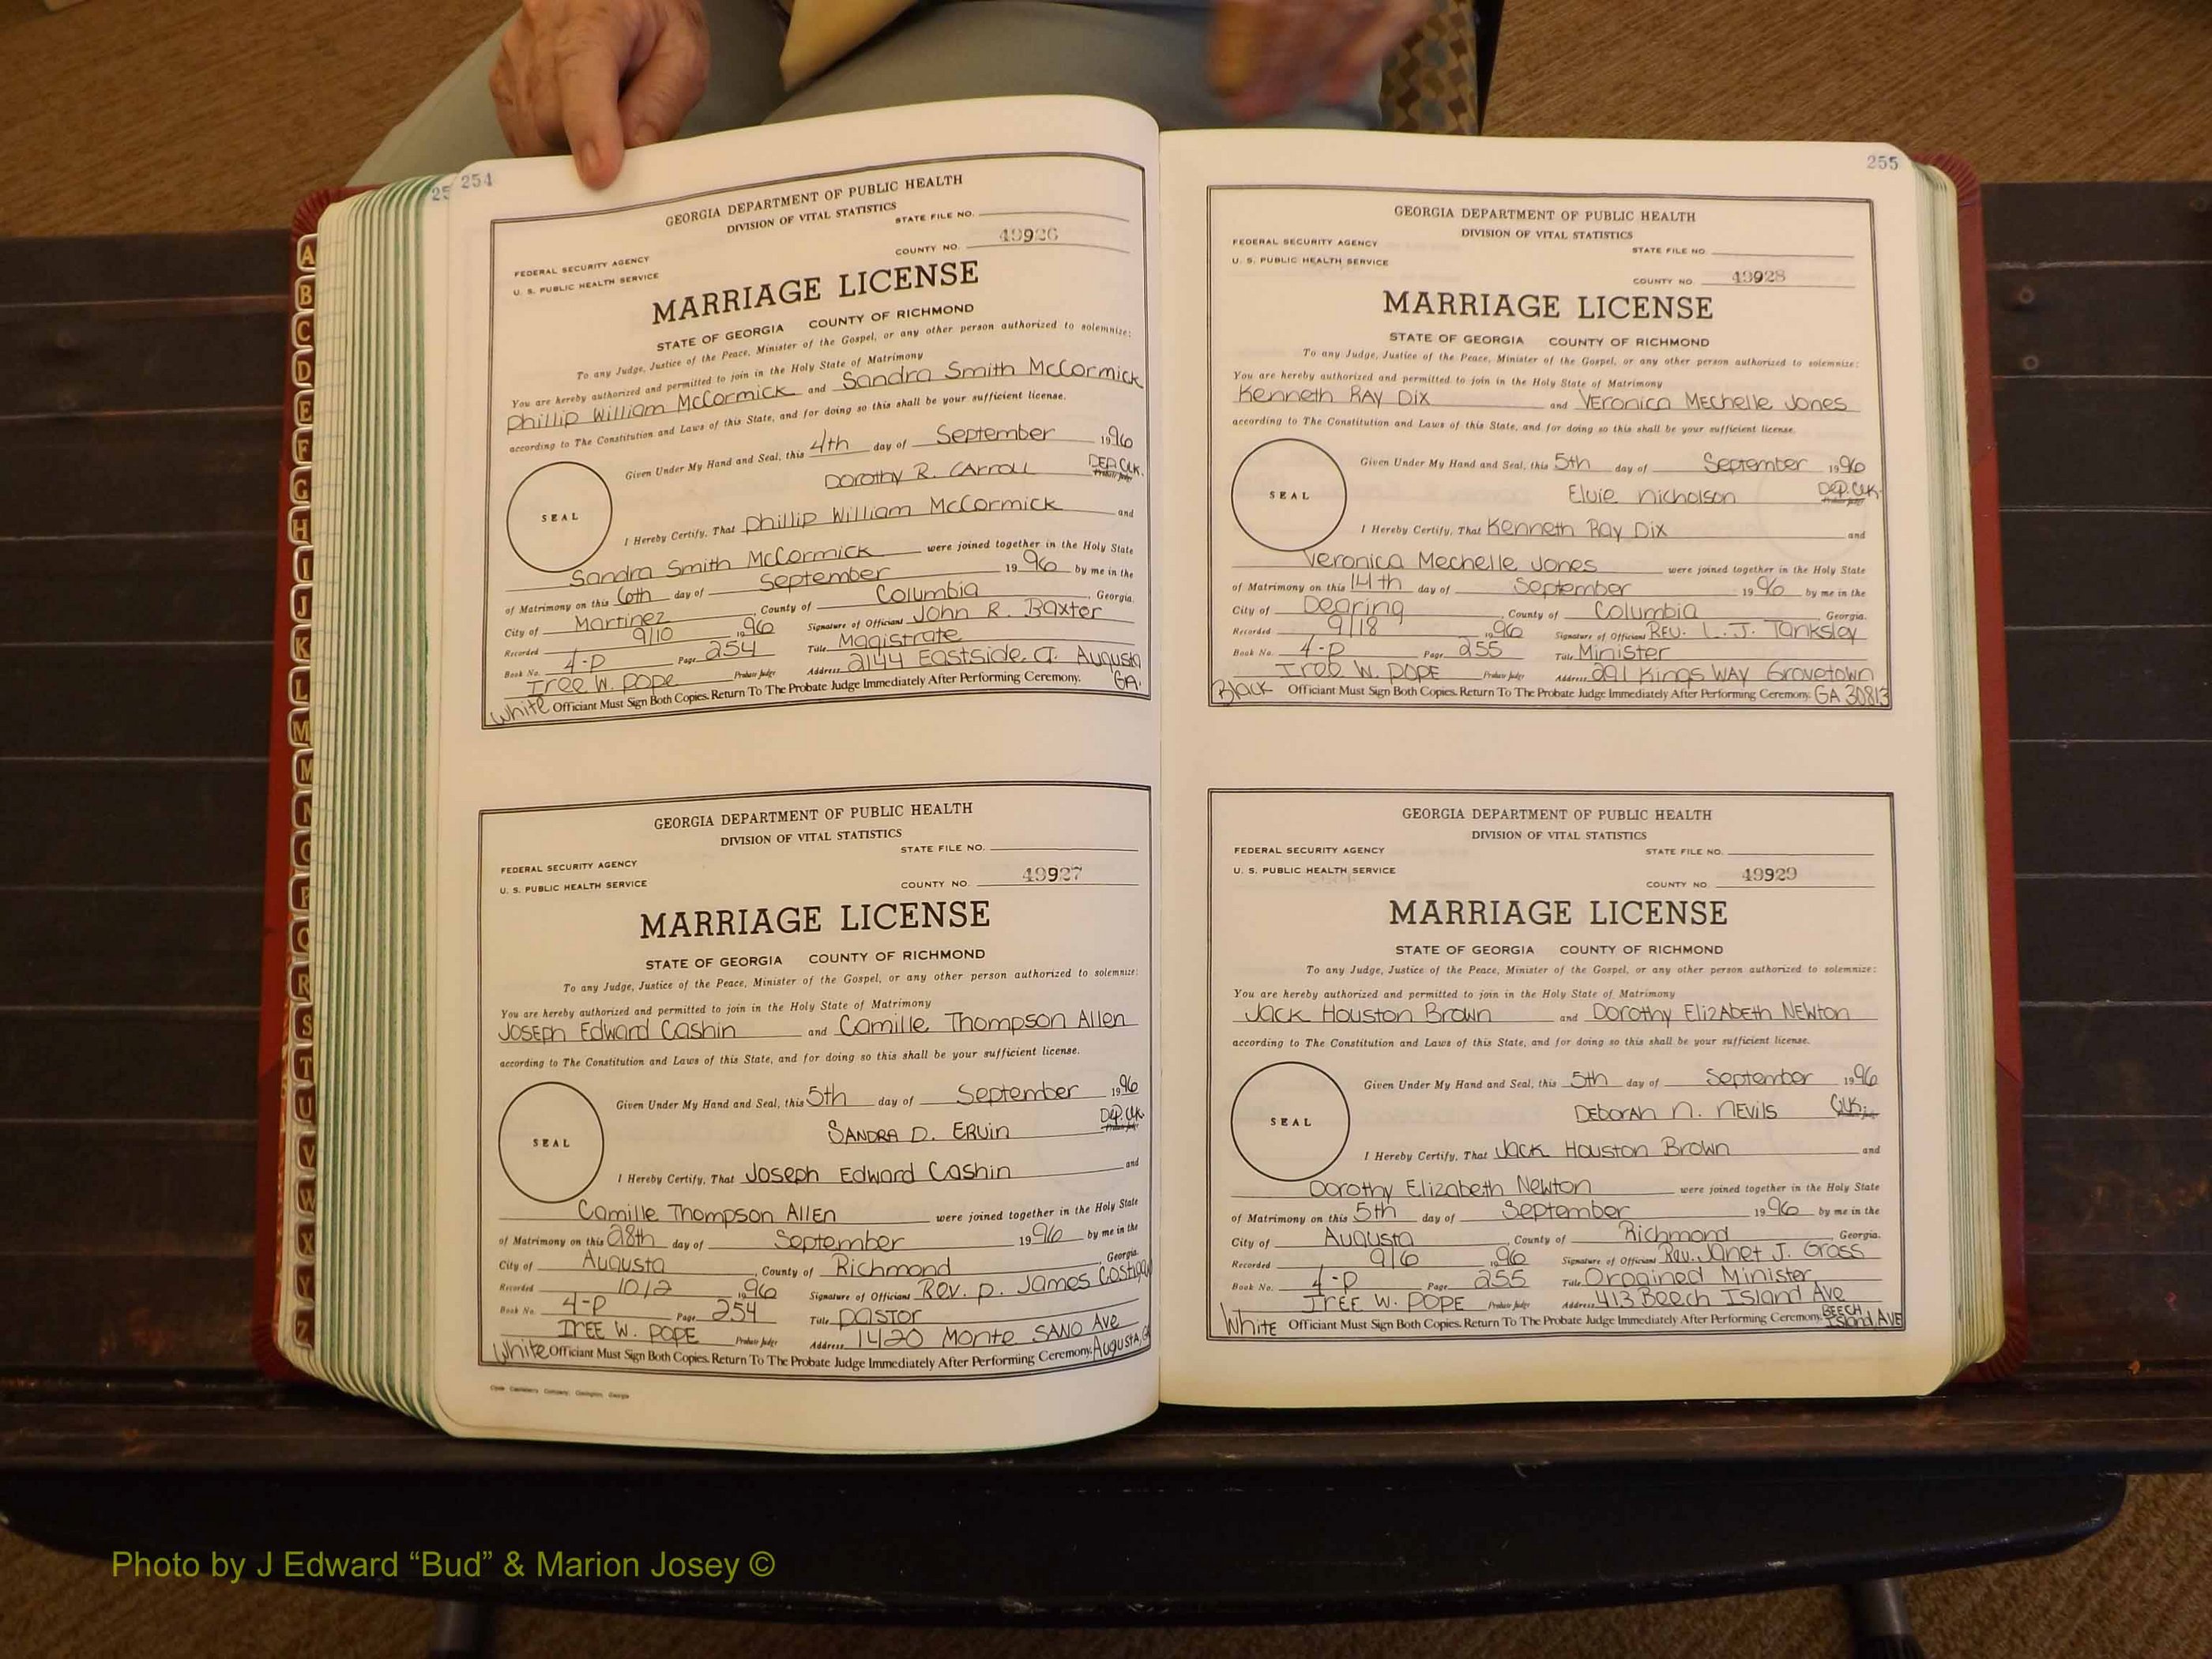 25 254
GEORGIA DEPARTMENT OF PUBLIC HEALTH
DIVISION OF VITAL STATISTICS
STATE FILE NO.
FEDERAL SECURITY AGENCY
U. S. PUBLIC HEALTH SERVICE
COUNTY NO. 49926
MARRIAGE LICENSE
STATE OF GEORGIA COUNTY OF RICHMOND
To any Judge, Justice of the Peace, Minister of the Gospel, or any other person authorized to solemnize:
You are hereby authorized and permitted to join in the Holy State of Matrimony
Phillip William McCormick and Sandra Smith McCormick
according to The Constitution and Laws of this State, and for doing so this shall be your sufficient license.
Given Under My Hand and Seal, this 4th day of September 1996
Dorothy R. Carroll DEP. CLK. Probate Judge
SEAL
I Hereby Certify, That Phillip William McCormick and
Sandra Smith McCormick were joined together in the Holy State
of Matrimony on this 6th day of September 1996 by me in the
City of Martinez, County of Columbia, Georgia.
Recorded 9/10 1996 Signature of Official John R. Baxter
Book No. 4-P Page 254 Title Magistrate
Iree W. Pope Probate Judge Address 2144 Eastside Ct. Augusta
White Officiant Must Sign Both Copies. Return To The Probate Judge Immediately After Performing Ceremony. GA.
GEORGIA DEPARTMENT OF PUBLIC HEALTH
DIVISION OF VITAL STATISTICS
STATE FILE NO.
FEDERAL SECURITY AGENCY
U. S. PUBLIC HEALTH SERVICE
COUNTY NO. 49927
MARRIAGE LICENSE
STATE OF GEORGIA COUNTY OF RICHMOND
To any Judge, Justice of the Peace, Minister of the Gospel, or any other person authorized to solemnize:
You are hereby authorized and permitted to join in the Holy State of Matrimony
Joseph Edward Cashin and Camille Thompson Allen
according to The Constitution and Laws of this State, and for doing so this shall be your sufficient license.
Given Under My Hand and Seal, this 5th day of September 1996
SANDRA D. Ervin Dep. Clk. Probate Judge
SEAL
I Hereby Certify, That Joseph Edward Cashin and
Camille Thompson Allen were joined together in the Holy State
of Matrimony on this 28th day of September 1996 by me in the
City of Augusta, County of Richmond Georgia.
Recorded 10/2 1996 Signature of Official Rev. P. James Costigan
Book No. 4-P Page 254 Title Pastor
IREE W. POPE Probate Judge Address 1420 Monte SANO Ave
White Officiant Must Sign Both Copies. Return To The Probate Judge Immediately After Performing Ceremony. Augusta, GA
255
GEORGIA DEPARTMENT OF PUBLIC HEALTH
DIVISION OF VITAL STATISTICS
FEDERAL SECURITY AGENCY
STATE FILE NO
U. S. PUBLIC HEALTH SERVICE
COUNTY NO. 49928
MARRIAGE LICENSE
STATE OF GEORGIA COUNTY OF RICHMOND
To any Judge, Justice of the Peace, Minister of the Gospel, or any other person authorized to solemnize:
You are hereby authorized and permitted to join in the Holy State of Matrimony
Kenneth RAY Dix and Veronica Mechelle Jones
according to The Constitution and Laws of this State, and for doing so this shall be your sufficient license.
Given Under My Hand and Seal, this 5th day of September 1996
Elvie Nicholson Dep. Clk. Probate Judge
SEAL
I Hereby Certify, That Kenneth Ray Dix and
Veronica Mechelle Jones were joined together in the Holy State
of Matrimony on this 14th day of September 1996 by me in the
City of Dearing, County of Columbia Georgia.
Recorded 9/18 1996 Signature of Official REV. L. J. Tanksley
Book No. 4-P Page 255 Title Minister
Iree W. POPE Probate Judge Address 291 Kings WAY Grovetown
Black Officiant Must Sign Both Copies. Return To The Probate Judge Immediately After Performing Ceremony. GA 30813
GEORGIA DEPARTMENT OF PUBLIC HEALTH
DIVISION OF VITAL STATISTICS
FEDERAL SECURITY AGENCY
STATE FILE NO.
U. S. PUBLIC HEALTH SERVICE
COUNTY NO. 49929
MARRIAGE LICENSE
STATE OF GEORGIA COUNTY OF RICHMOND
To any Judge, Justice of the Peace, Minister of the Gospel, or any other person authorized to solemnize:
You are hereby authorized and permitted to join in the Holy State of Matrimony
Jack Houston Brown and Dorothy Elizabeth Newton
according to The Constitution and Laws of this State, and for doing so this shall be your sufficient license.
Given Under My Hand and Seal, this 5th day of September 1996
Deborah N. Nevils Clk.
SEAL
I Hereby Certify, That Jack Houston Brown and
Dorothy Elizabeth Newton were joined together in the Holy State
of Matrimony on this 5th day of September 1996 by me in the
City of Augusta, County of Richmond, Georgia.
Recorded 9/6 1996 Signature of Official Rev. Janet J. Grass
Book No. 4-P Page 255 Title Ordained Minister
IREE W. POPE Probate Judge Address 413 Beech Island Ave
White Officiant Must Sign Both Copies. Return To The Probate Judge Immediately After Performing Ceremony. BEECH Island AVE
A
B
C
D
E
F
G
H
I
J
K
L
M
M
N
O
P
Q
R
S
T
U
V
W
X
Y
Z
Photo by J Edward “Bud” & Marion Josey ©